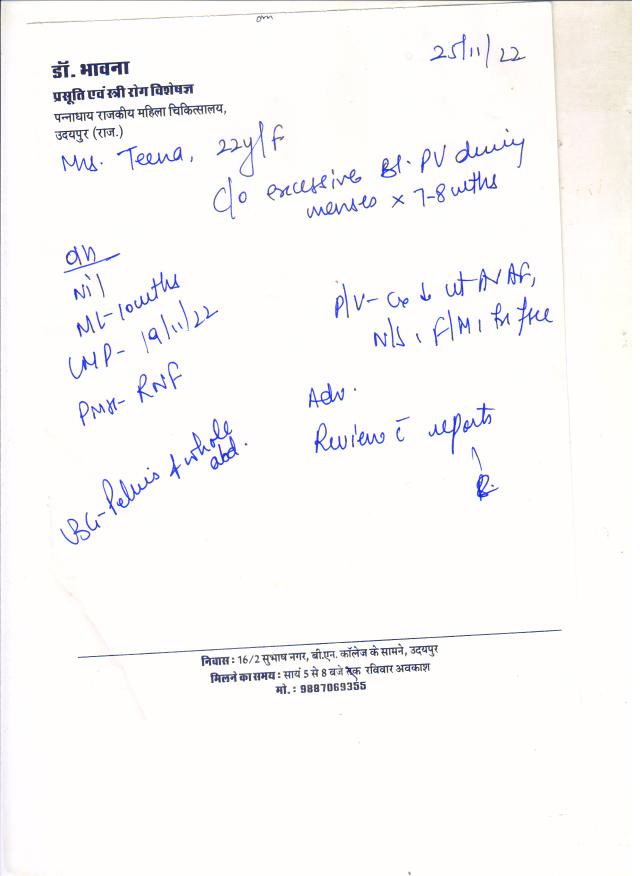 25/11/22
डॉ. भावना
प्रसूति एवं स्त्री रोग विशेषज्ञ
पन्नाधाय राजकीय महिला चिकित्सालय,
उदयपुर (राज.)
Mrs. Teena, 22y/F
C/o excessive Bl. PV during
menses x 7-8 mths
O/H
Nil
ML-10 mths
LMP- 19/11/22
PMH- RNF
P/V- Cx ↓ ut AV AF,
N/S, F/M, fx free
Adv.
Review c̄ reports
USG-Pelvis + whole
abd.
निवास : 16/2 सुभाष नगर, बी.एन. कॉलेज के सामने, उदयपुर
मिलने का समय : सायं 5 से 8 बजे तक रविवार अवकाश
मो. : 9887069355